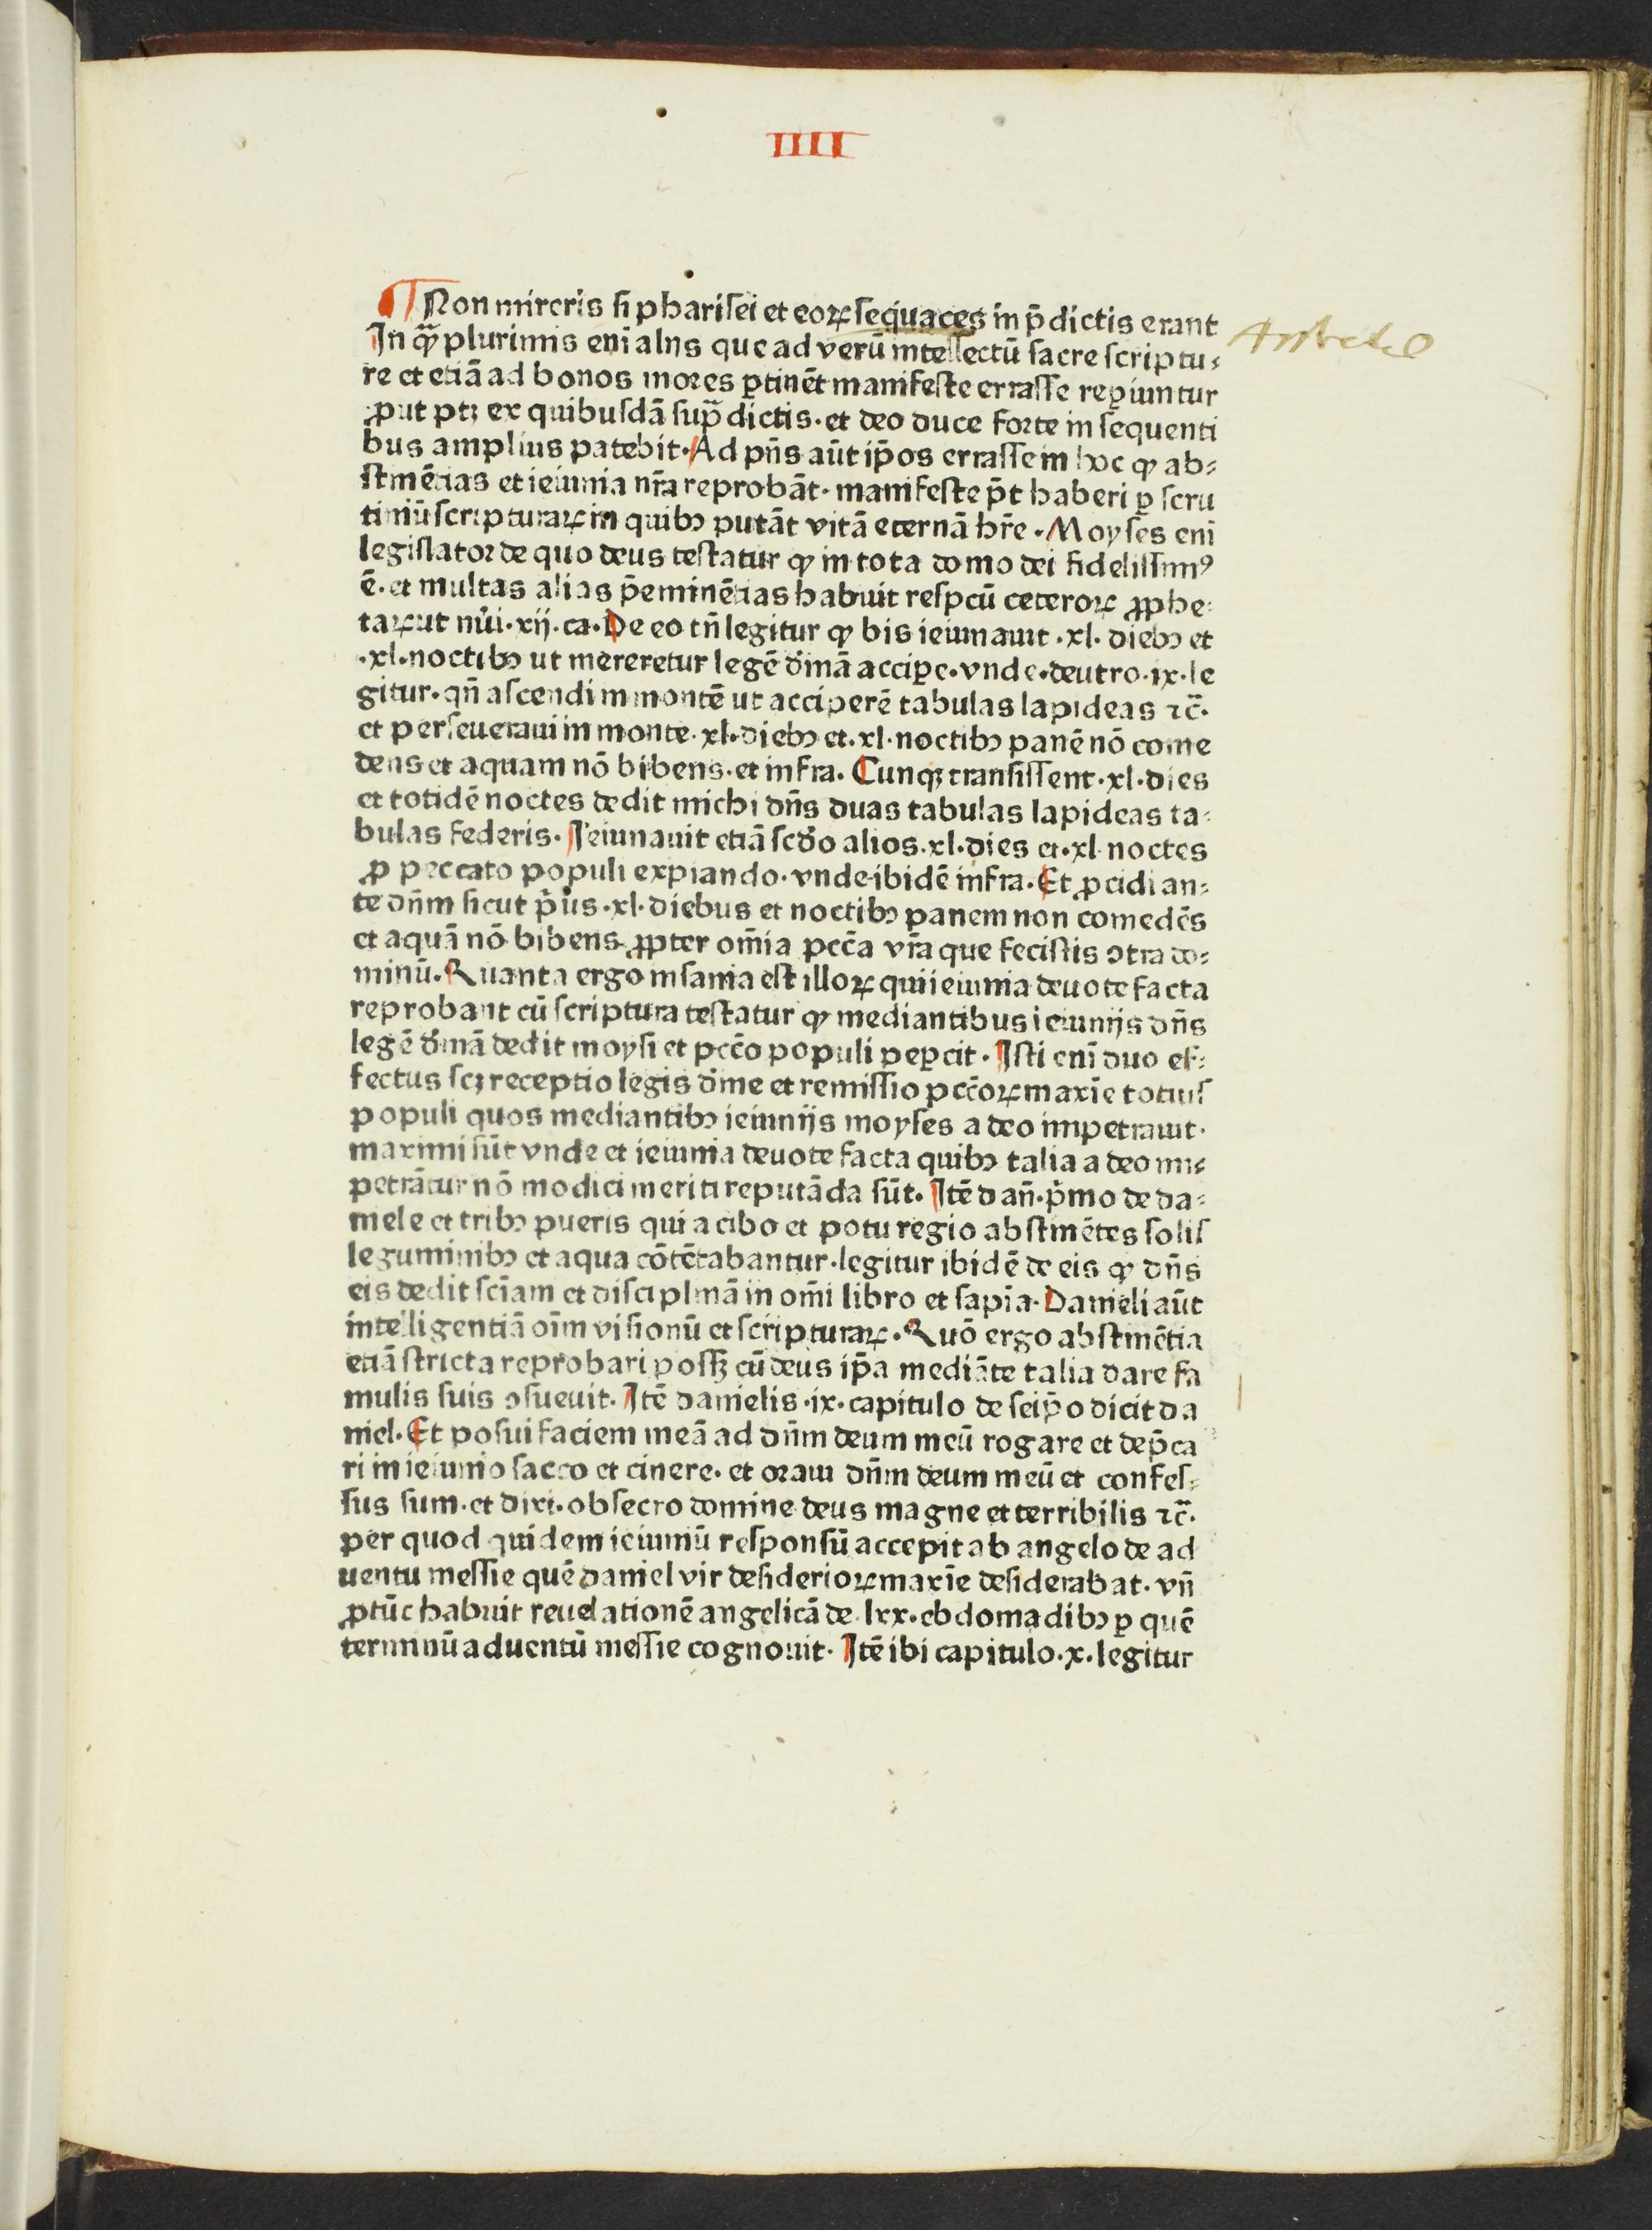 IIII
¶ Non mireris si pharisei et eoꝝ sequaces in p̄dictis erant
In qꝫ plurimis eni alijs que ad verū intellectū sacre scriptu⸗
re et etiā ad bonos mores ꝑtinēt manifeste errasse reꝑiuntur
ꝓut ptꝫ ex quibusdā sup̄dictis· et deo duce forte in sequenti
bus amplius patebit· Ad p̄ns aūt ip̄os errasse in hoc ꝙ ab⸗
stinētias et ieiunia nr̄a reprobāt· manifeste p̄t haberi ꝑ scru
tiniū scripturaꝝ in quibꝫ putāt vitā eternā hr̄e· Moyses eni
legislator de quo deus testatur ꝙ in tota domo dei fidelissimꝰ
ē· et multas alias p̄eminētias habuit respcū ceteroꝝ ꝓphe⸗
taꝝ ut nūi· xij· ca· De eo tn̄ legitur ꝙ bis ieiunauit ·xl· diebꝫ et
·xl· noctibꝫ ut mereretur legē diuinā acciꝑe· vnde· deutro· ix· le
gitur· qn̄ ascendi in montē ut acciperē tabulas lapideas ⁊c̄·
et perseueraui in monte· xl· diebꝫ et· xl· noctibꝫ panē nō come
dens et aquam nō bibens· et infra· Cunqꝫ transissent· xl· dies
et totidē noctes dedit michi dn̄s duas tabulas lapideas ta⸗
bulas federis· Ieiunauit etiā scdo alios· xl· dies et· xl· noctes
ꝓ peccato populi expiando· vnde ibidē infra· Et ꝓcidi an⸗
te dn̄m sicut p̄us· xl· diebus et noctibꝫ panem non comedēs
et aquā nō bibens ꝓpter om̄ia pcc̄a vr̄a que fecistis ꝯtra do⸗
minū· Quanta ergo insania est illoꝝ qui ieiunia deuote facta
reprobant cū scriptura testatur ꝙ mediantibus ieiunijs dn̄s
legē diuinā dedit moysi et pcc̄o populi peꝑcit· Isti eni duo ef⸗
fectus scꝫ receptio legis diuine et remissio pcc̄oꝝ maxīe totius
populi quos mediantibꝫ ieiunijs moyses a deo impetrauit·
maximi sūt vnde et ieiunia deuote facta quibꝫ talia a deo im⸗
petrātur nō modici meriti reputāda sūt· Itē dan̄· p̄mo de da⸗
niele et tribꝫ pueris qui a cibo et potu regio abstinētes solis
leguminibꝫ et aqua cōtētabantur· legitur ibidē de eis ꝙ dn̄s
eis dedit sciam et disciplinā in om̄i libro et sapia· Danieli aūt
intelligentiā oim visionū et scripturaꝝ· Quō ergo abstinētia
etiā stricta reprobari possꝫ cū deus ip̄a mediāte talia dare fa
mulis suis ꝯsueuit· Itē danielis· ix· capitulo de seip̄o dicit da
niel· Et posui faciem meā ad dn̄m deum meū rogare et dep̄ca
ri in ieiunio sacco et cinere· et oraui dn̄m deum meū et confes⸗
sus sum· et dixi· obsecro domine deus magne et terribilis ⁊c̄·
per quod quidem ieiuniū responsū accepit ab angelo de ad
uentu messie quē daniel vir desiderioꝝ maxīe desiderabat· vn̄
ꝓtūc habuit reuelationē angelicā de· lxx· ebdomadibꝫ ꝑ quē
terminū aduentū messie cognouit· Itē ibi capitulo· x· legitur